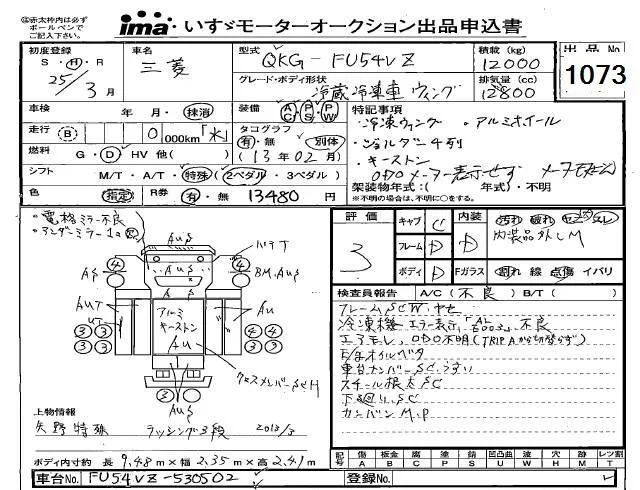 ◎赤太枠内は必ず
ボールペンで
ご記入下さい。
ima いすゞモーターオークション出品申込書
初度登録 S・H・R 25/3月
車名 三菱
型式 QKG-FU54VZ
積載(kg) 12000
出品No 1073
グレード・ボディ形状 冷蔵冷凍車 ウィング
排気量(cc) 12800
車検 年・月・抹消
装備 AC PS PW
特記事項
・冷凍ウィング ・アルミホイール
走行 B 0 000km「水」
タコグラフ 有・無 別体
(13年02月)
・ジョルダー4列
・キーストン
燃料 G・D・HV 他( )
ODOメーター表示せず
シフト M/T・A/T・特殊(2ペダル・3ペダル)
架装物年式:( 年式)・不明
※不明の場合は、不明に○をする。
色 指定 R券 有・無 13480 円
・電格ミラー不良
・アンダーミラー
評価 3
キャブ C 内装 D
汚れ 破れ コゲ スレ
フレーム D
内装品外しM
ボディ D Fガラス 割れ 線 点傷 イバリ
検査員報告 A/C(不良) B/T( )
フレームSCW,サビ
冷凍機 エラー表示 不良
エアモレ、ODO不明(TRIP Aから切替らず)
スチール根太SC
下廻り、SC
カンバンM.P
AuS
AuS
AS
BM.AuS
AuT
UT
Au
アルミ
キーストン
Au
AuS
クロスメンバーSCH
4 4 3 3 3 3 4 4 3 3
上物情報
矢野特殊 ラッシング3段 2013/3
ボディ内寸約 長 9.48m×幅 2.35m×高 2.41m
記号 傷A 板金B 腐C 塗P サビS 凹凸曲U 波W 穴H 跡M レツ割T
車台No FU54VZ-530502
登録No